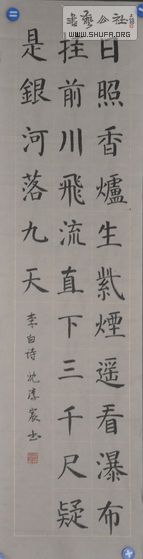 日照香爐生紫煙遥看瀑布
挂前川飛流直下三千尺疑
是銀河落九天
李白诗 沈
书
書藝公社
WWW.SHUFA.ORG